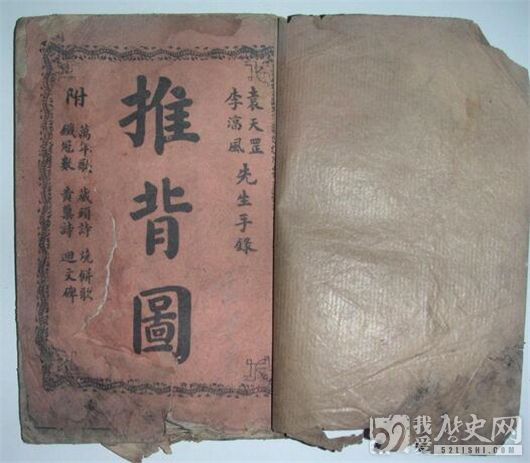 袁天罡
李湻風
先生手錄
推背圖
附
萬年歌 藏頭詩 燒餅歌
鐵冠數 黃蘗詩 迴文碑
我爱历史网
521LISHI.COM